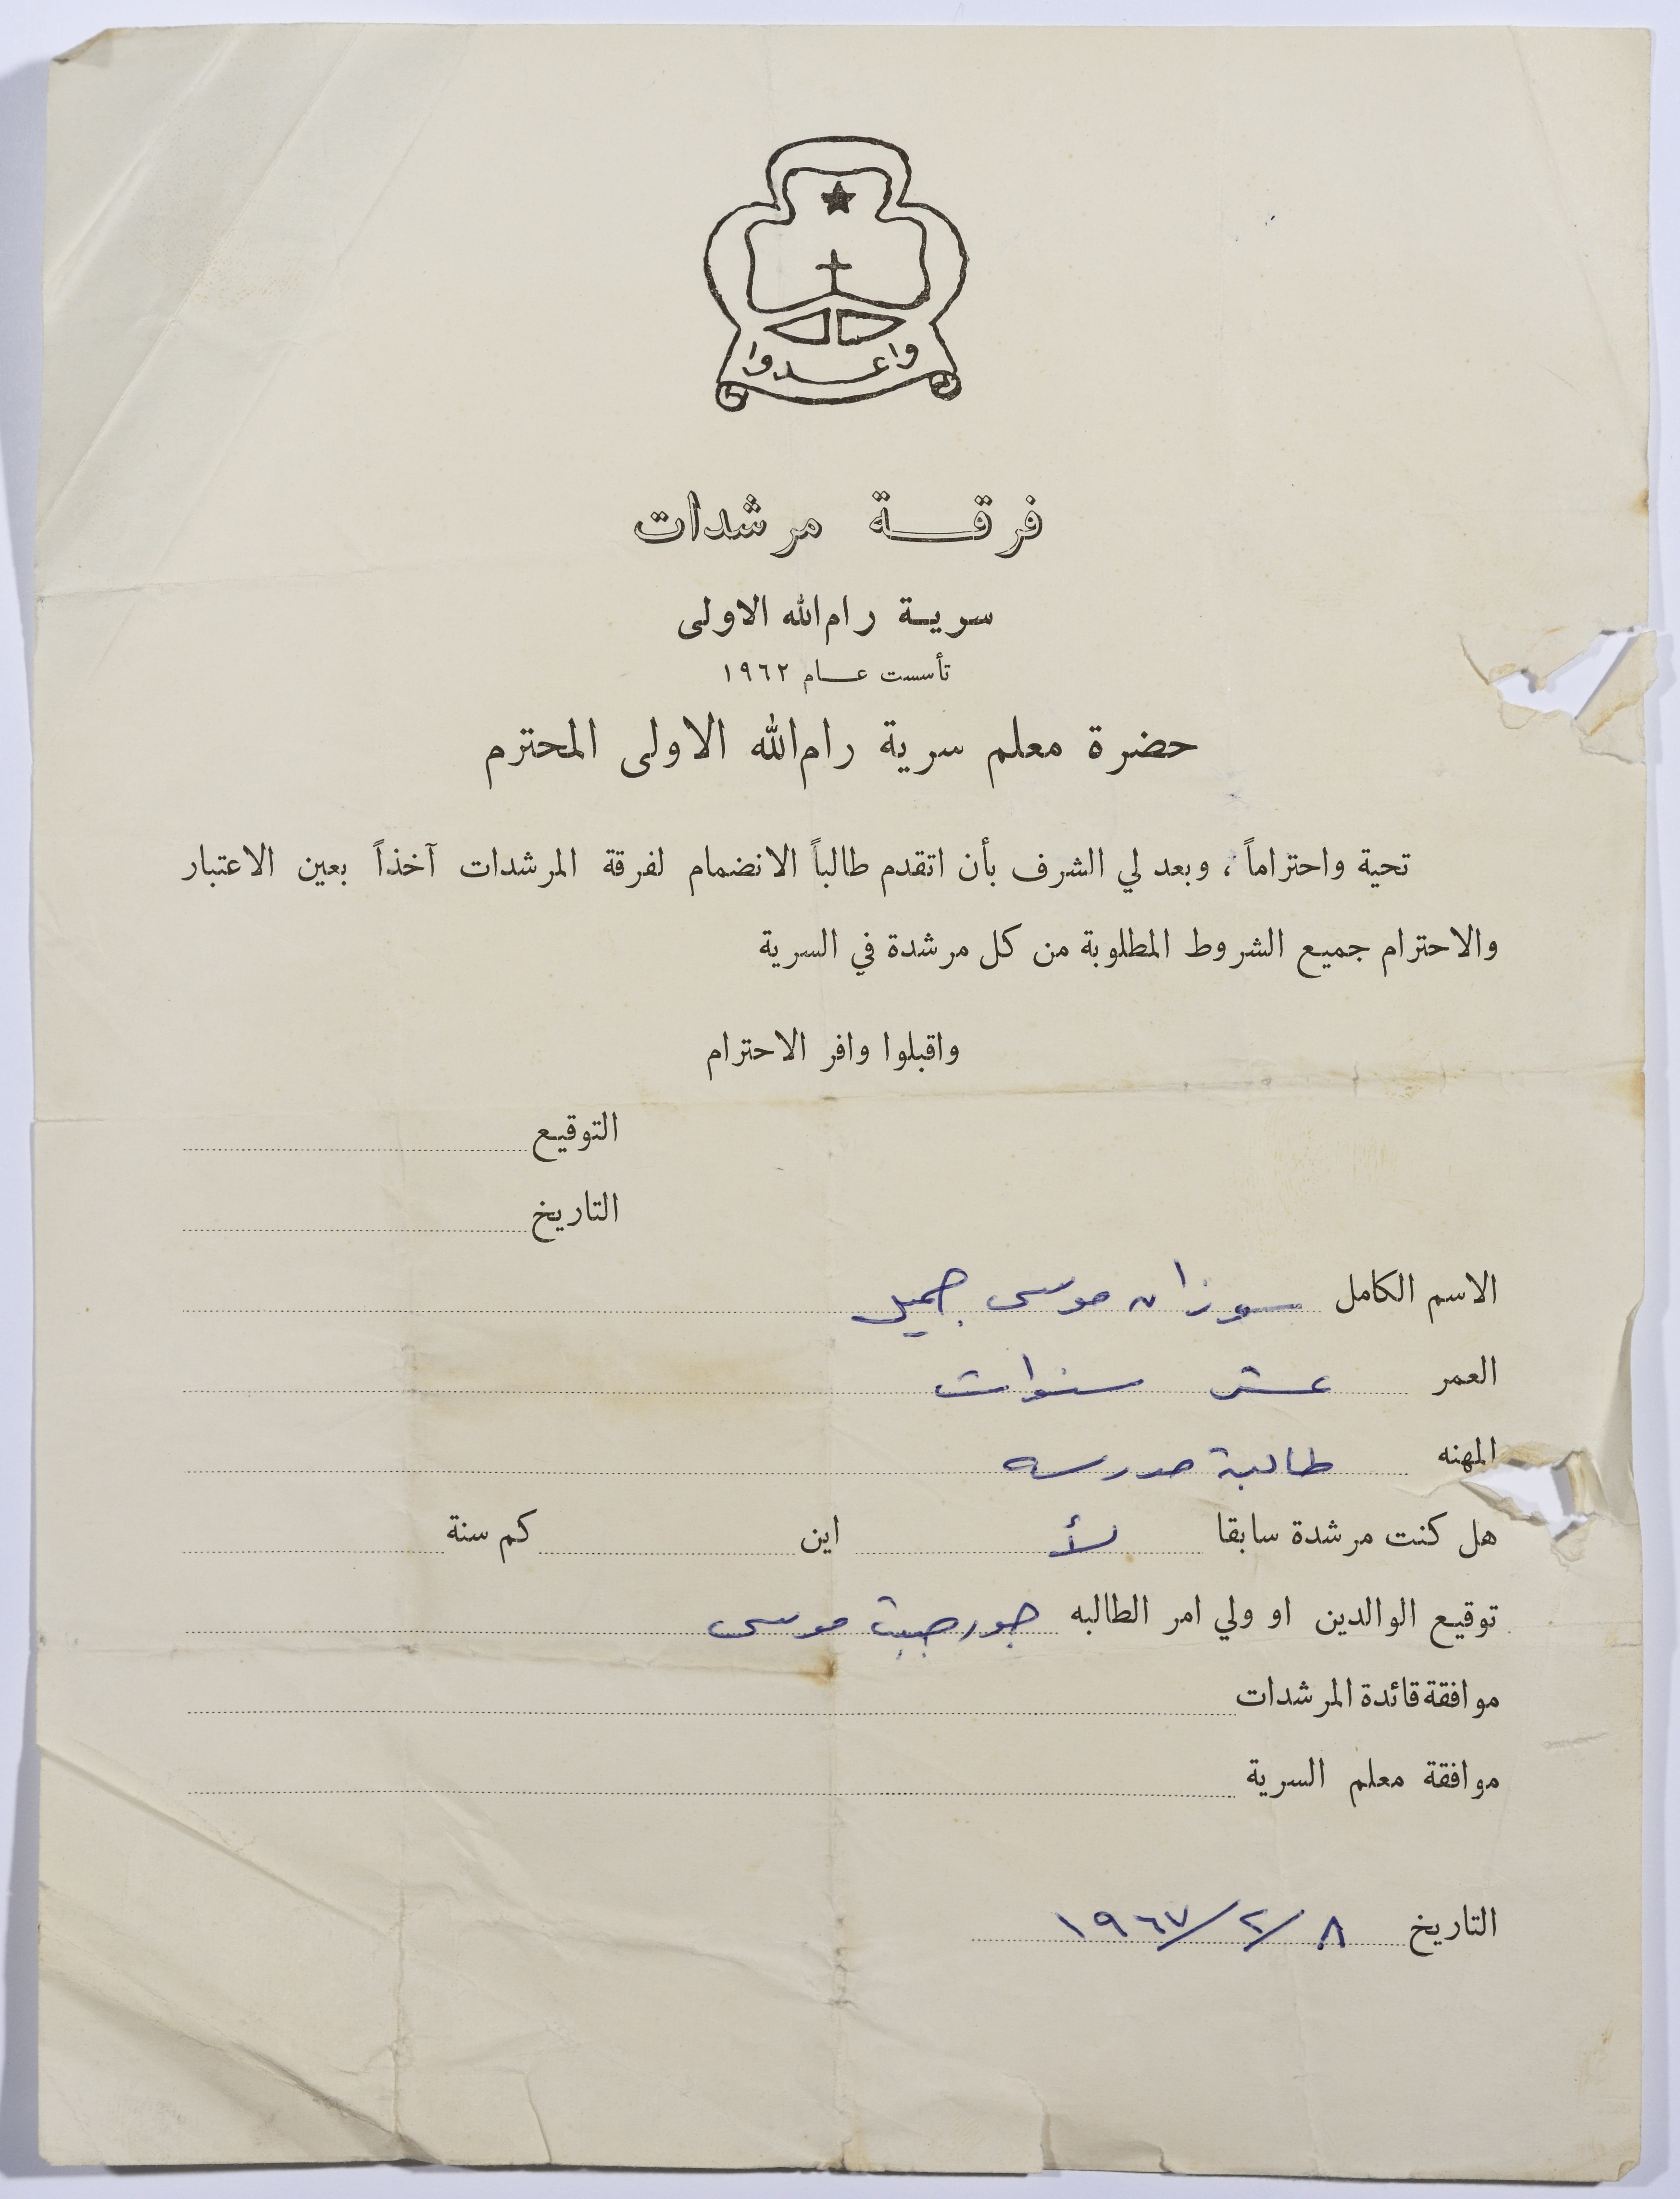 واعدوا
فرقة مرشدات
سرية رام الله الاولى
تأسست عام ١٩٦٢
حضرة معلم سرية رام الله الاولى المحترم
تحية واحتراماً ، وبعد لي الشرف بأن اتقدم طالباً الانضمام لفرقة المرشدات آخذاً بعين الاعتبار
والاحترام جميع الشروط المطلوبة من كل مرشدة في السرية
واقبلوا وافر الاحترام
التوقيع
التاريخ
الاسم الكامل سوزان موسى جميل
العمر عشر سنوات
المهنه طالبة مدرسه
هل كنت مرشدة سابقا لأ اين كم سنة
توقيع الوالدين او ولي امر الطالبه جورجيت موسى
موافقة قائدة المرشدات
موافقة معلم السرية
التاريخ ٨/٢/١٩٦٧